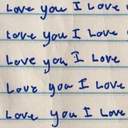 Love you I Love
Love you I Love
Love you I Love
Love you I Love
Love you I Love